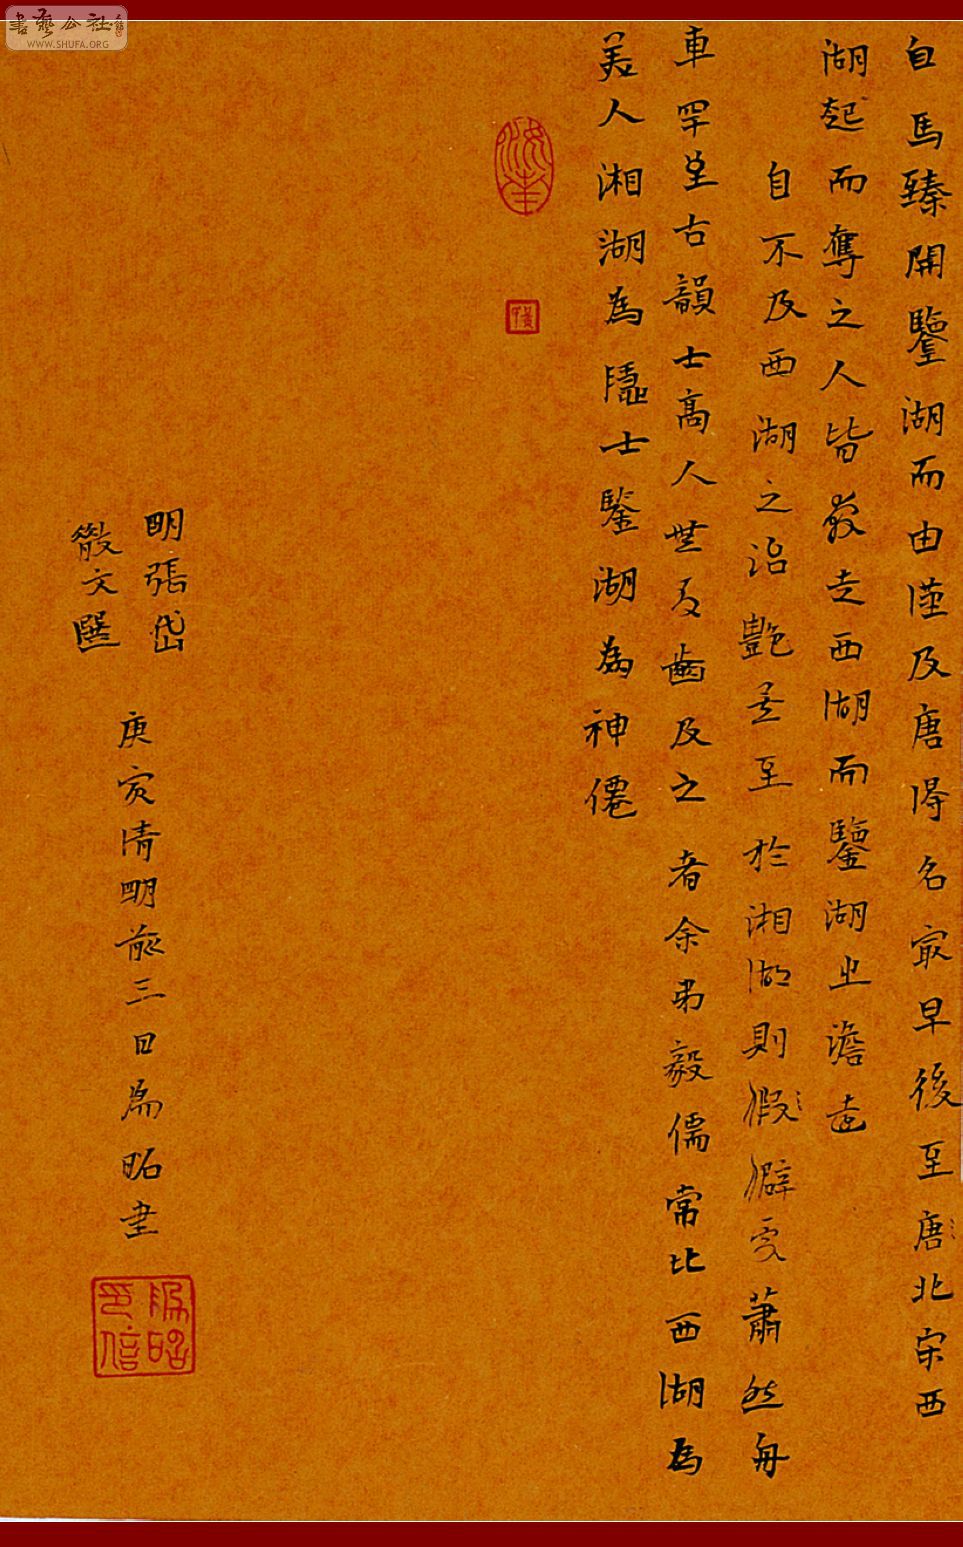 書藝公社
WWW.SHUFA.ORG
自馬臻開鑒湖而由漢及唐得名最早後至唐北宋西
湖起而奪之人皆奔走西湖而鑒湖之澹遠
自不及西湖之冶艷矣至於湘湖則假僻處蕭然舟
車罕至古韻士高人無有齒及之者余弟毅儒常比西湖為
美人湘湖為隱士鑒湖為神僊
明張岱
散文選
庚寅清明前三日為昭書
為昭印信